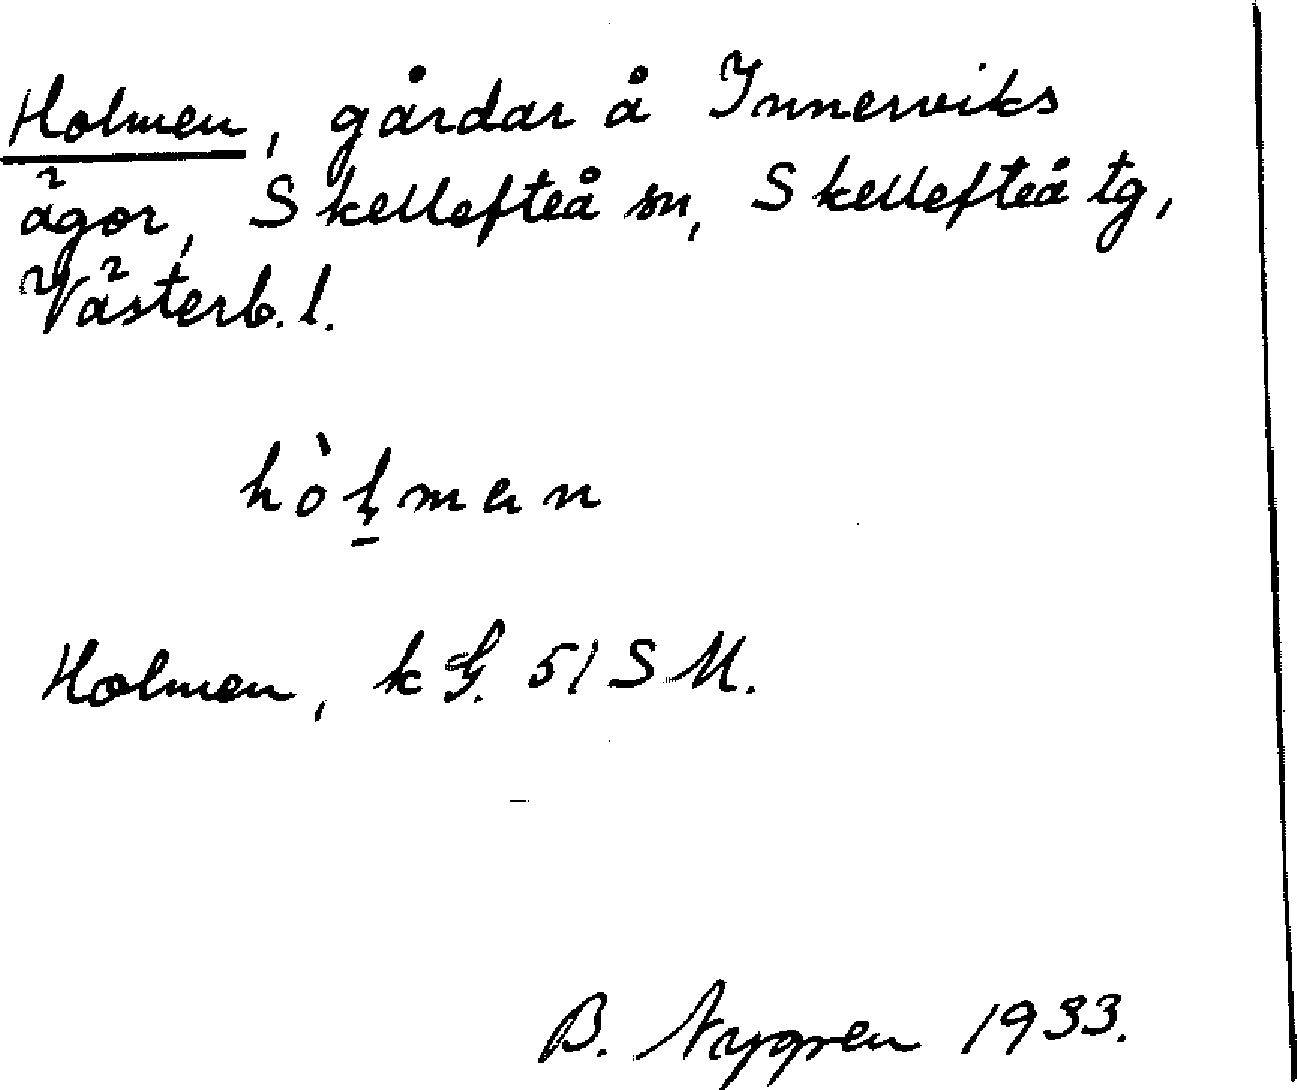 Holmen, gårdar å Innerviks
ägor, Skellefteå sn, Skellefteå tg,
Västerb. l.
hòl̠man
Holmen, k G. 51 S M.
B. Nygren 1933.